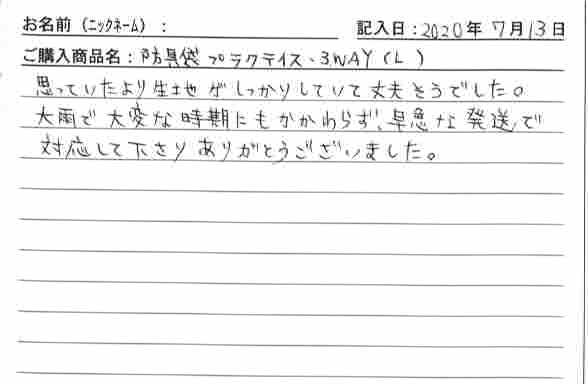 お名前（ニックネーム）：
記入日：2020年 7月13日
ご購入商品名：防具袋 プラクティス・3WAY（L）
思っていたより生地がしっかりしていて丈夫そうでした。
大雨で大変な時期にもかかわらず、早急な発送で
対応して下さり ありがとうございました。